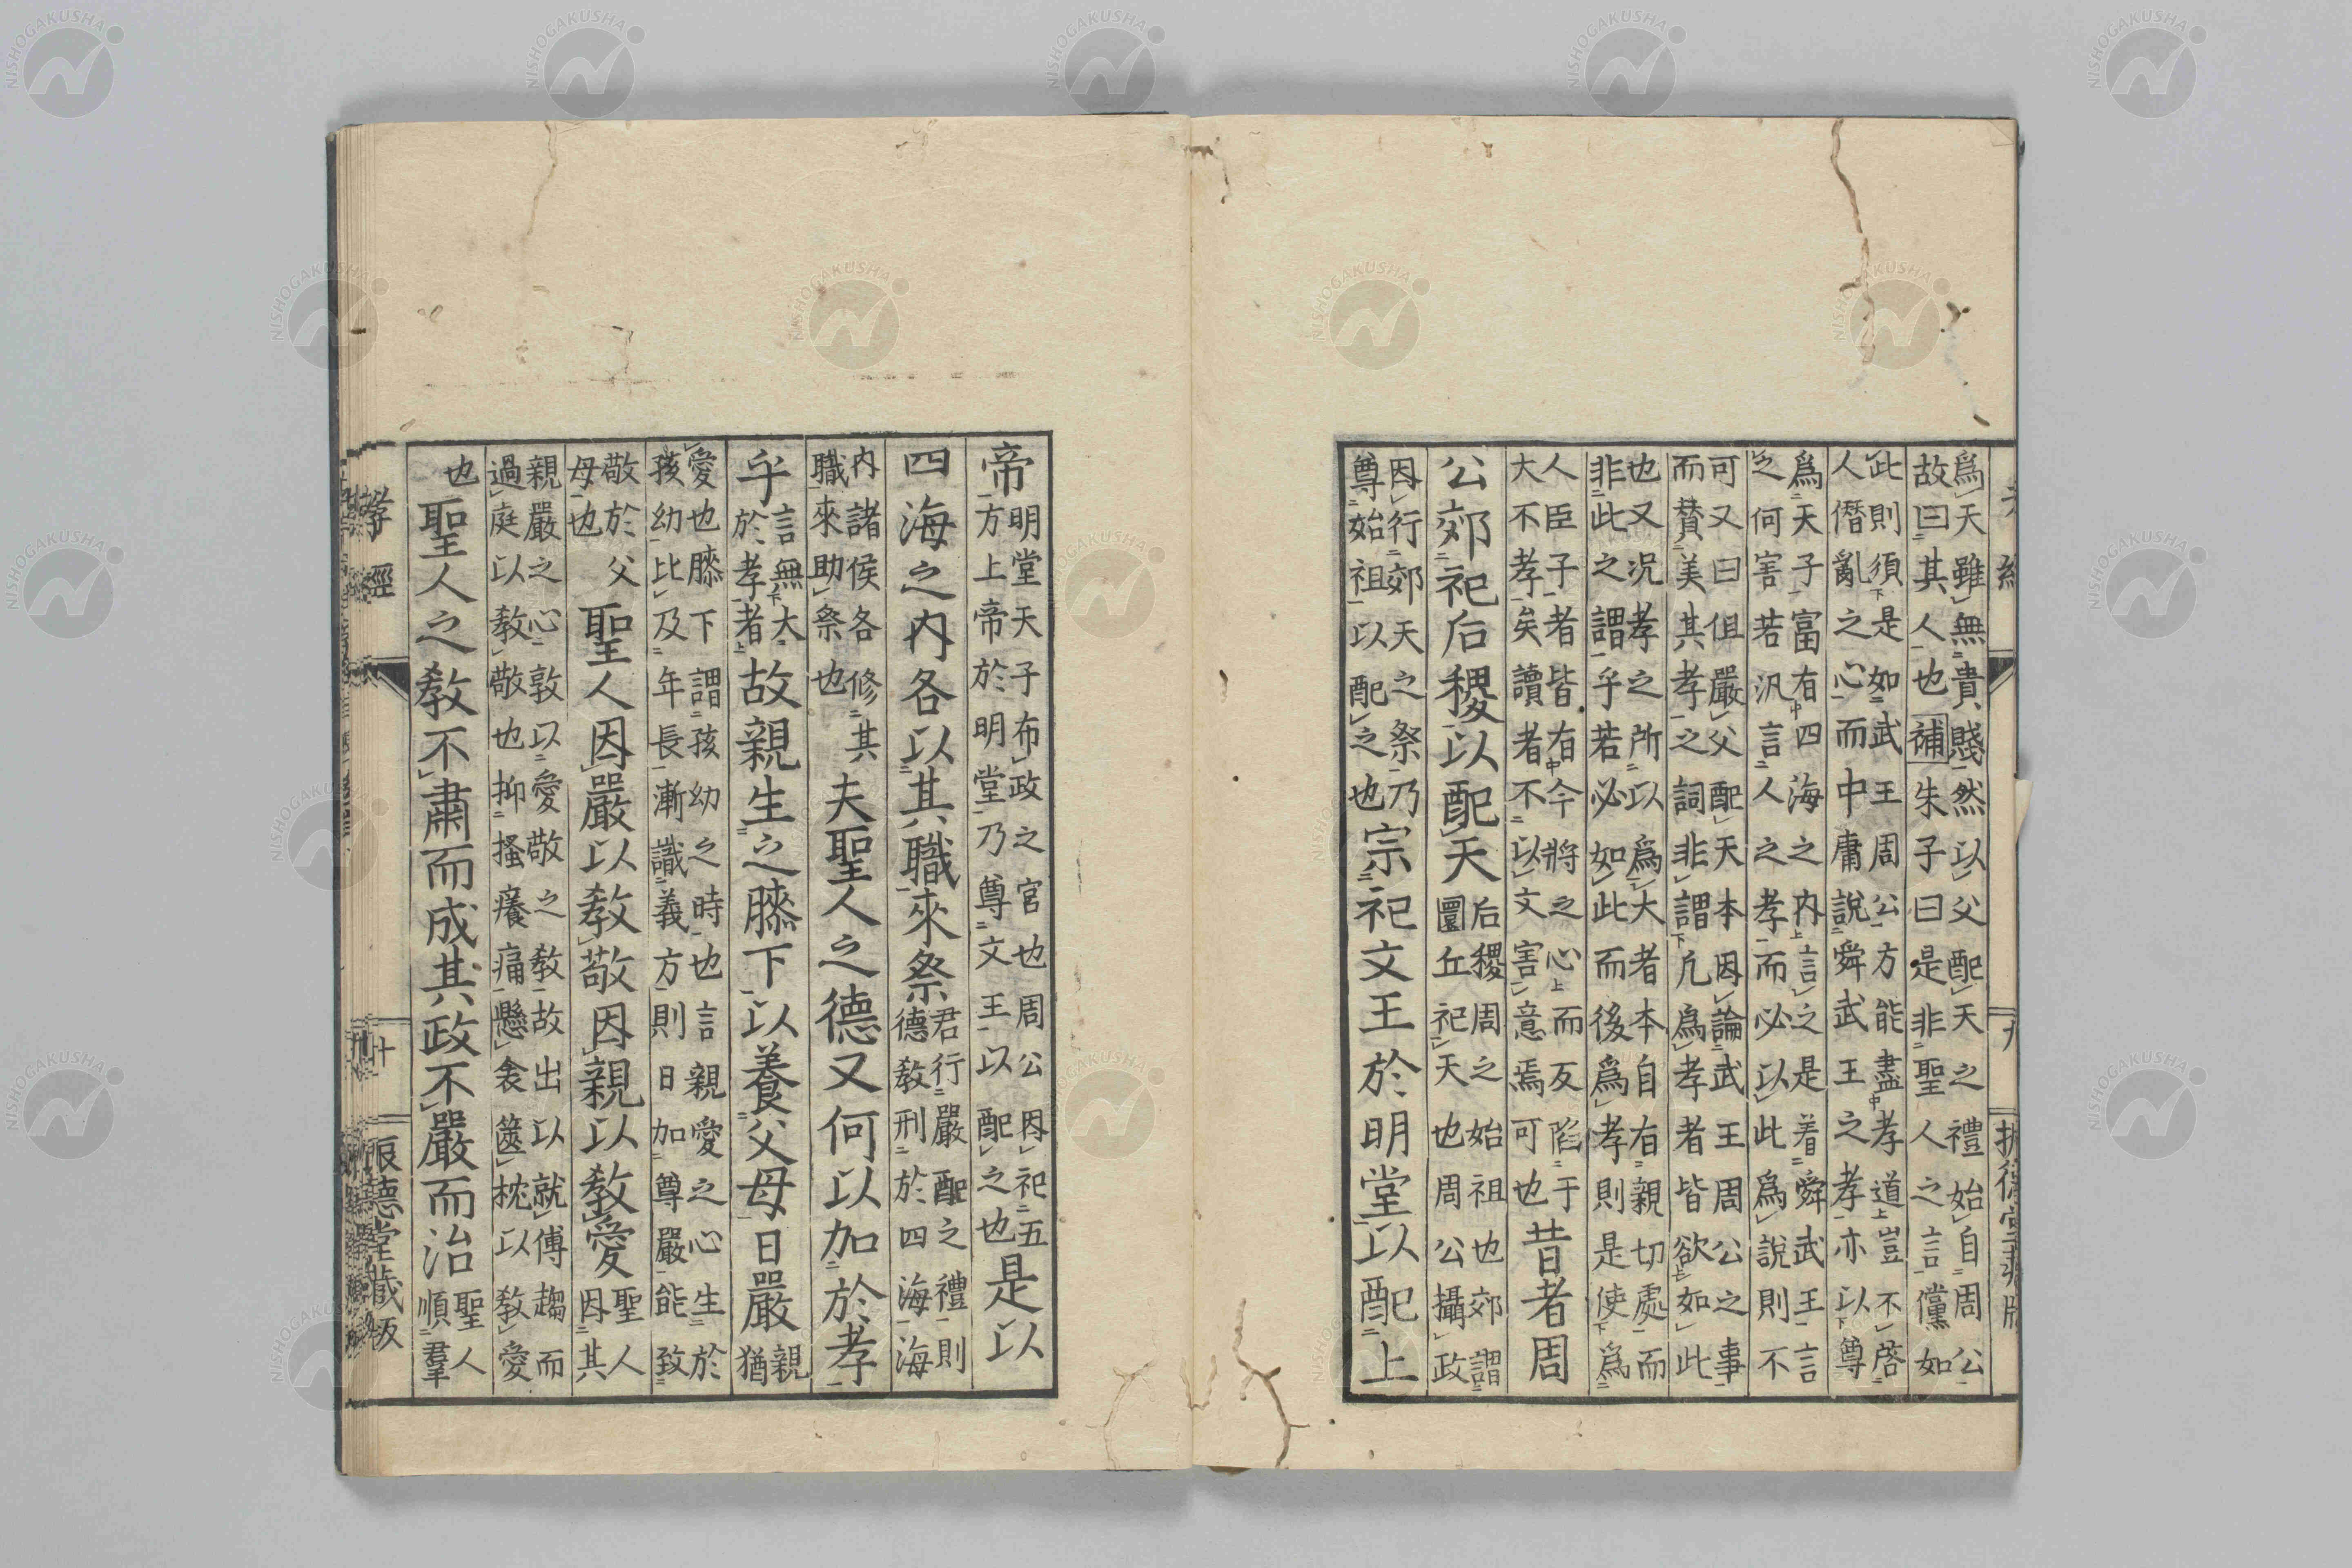 爲天雖無貴賤然以父配天之禮始自周公
故曰其人也補朱子曰是非聖人之言儻如
此則須是如武王周公方能盡孝道豈不啓
人僭亂之心而中庸說舜武王之孝亦以尊
爲天子富有四海之內言之是着舜武王言
之何害若汎言人之孝而必以此爲說則不
可又曰但嚴父配天本因論武王周公之事
而賛美其孝之詞非謂凡爲孝者皆欲如此
也又况孝之所以爲大者本自有親切處而
非此之謂乎若必如此而後爲孝則是使爲
人臣子者皆有今將之心而反陷于
大不孝矣讀者不以文害意焉可也
昔者周
公郊祀后稷以配天
后稷周之始祖也郊謂
圜丘祀天也周公攝政
因行郊天之祭乃
尊始祖以配之也
宗祀文王於明堂以配上
帝
明堂天子布政之官也周公因祀五
方上帝於明堂乃尊文王以配之也
是以
四海之內各以其職來祭
君行嚴配之禮則
德教刑於四海海
內諸侯各修其
職來助祭也
夫聖人之德又何以加於孝
乎
言無大
於孝者
故親生之膝下以養父母日嚴
親
猶
愛也膝下謂孩幼之時也言親愛之心生於
孩幼比及年長漸識義方則日加尊嚴能致
敬於父
母也
聖人因嚴以教敬因親以教愛
聖人
因其
親嚴之心敦以愛敬之教故出以就傅趨而
過庭以教敬也抑搔癢痛懸衾篋枕以教愛
也
聖人之教不肅而成其政不嚴而治
聖人
順羣
孝經
十
德堂藏版